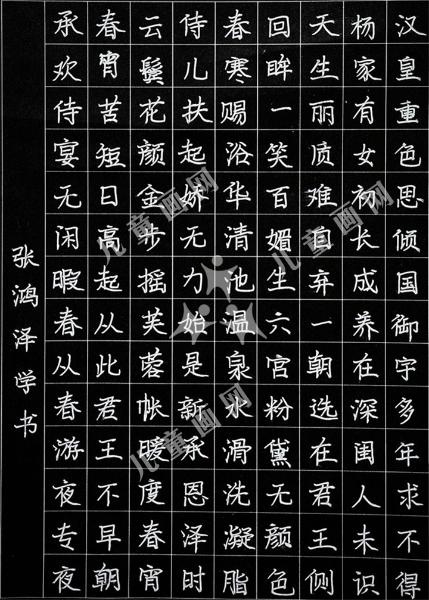 汉皇重色思倾国御宇多年求不得
杨家有女初长成养在深闺人未识
天生丽质难自弃一朝选在君王侧
回眸一笑百媚生六宫粉黛无颜色
春寒赐浴华清池温泉水滑洗凝脂
侍儿扶起娇无力始是新承恩泽时
云鬓花颜金步摇芙蓉帐暖度春宵
春宵苦短日高起从此君王不早朝
承欢侍宴无闲暇春从春游夜专夜
张鸿泽学书
儿童画网
儿童画网
儿童画网